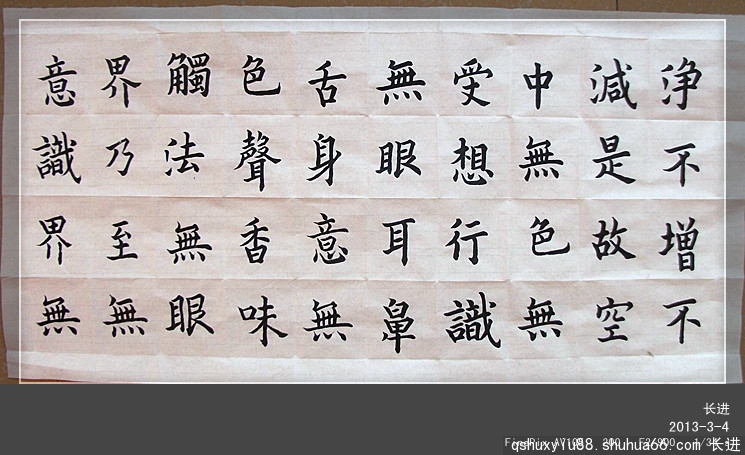 净不增不
減是故空
中無色無
受想行識
無眼耳鼻
舌身意無
色聲香味
觸法無眼
界乃至無
意識界無
长进
2013-3-4
qshuxyiu88.shuhua66.com 长进